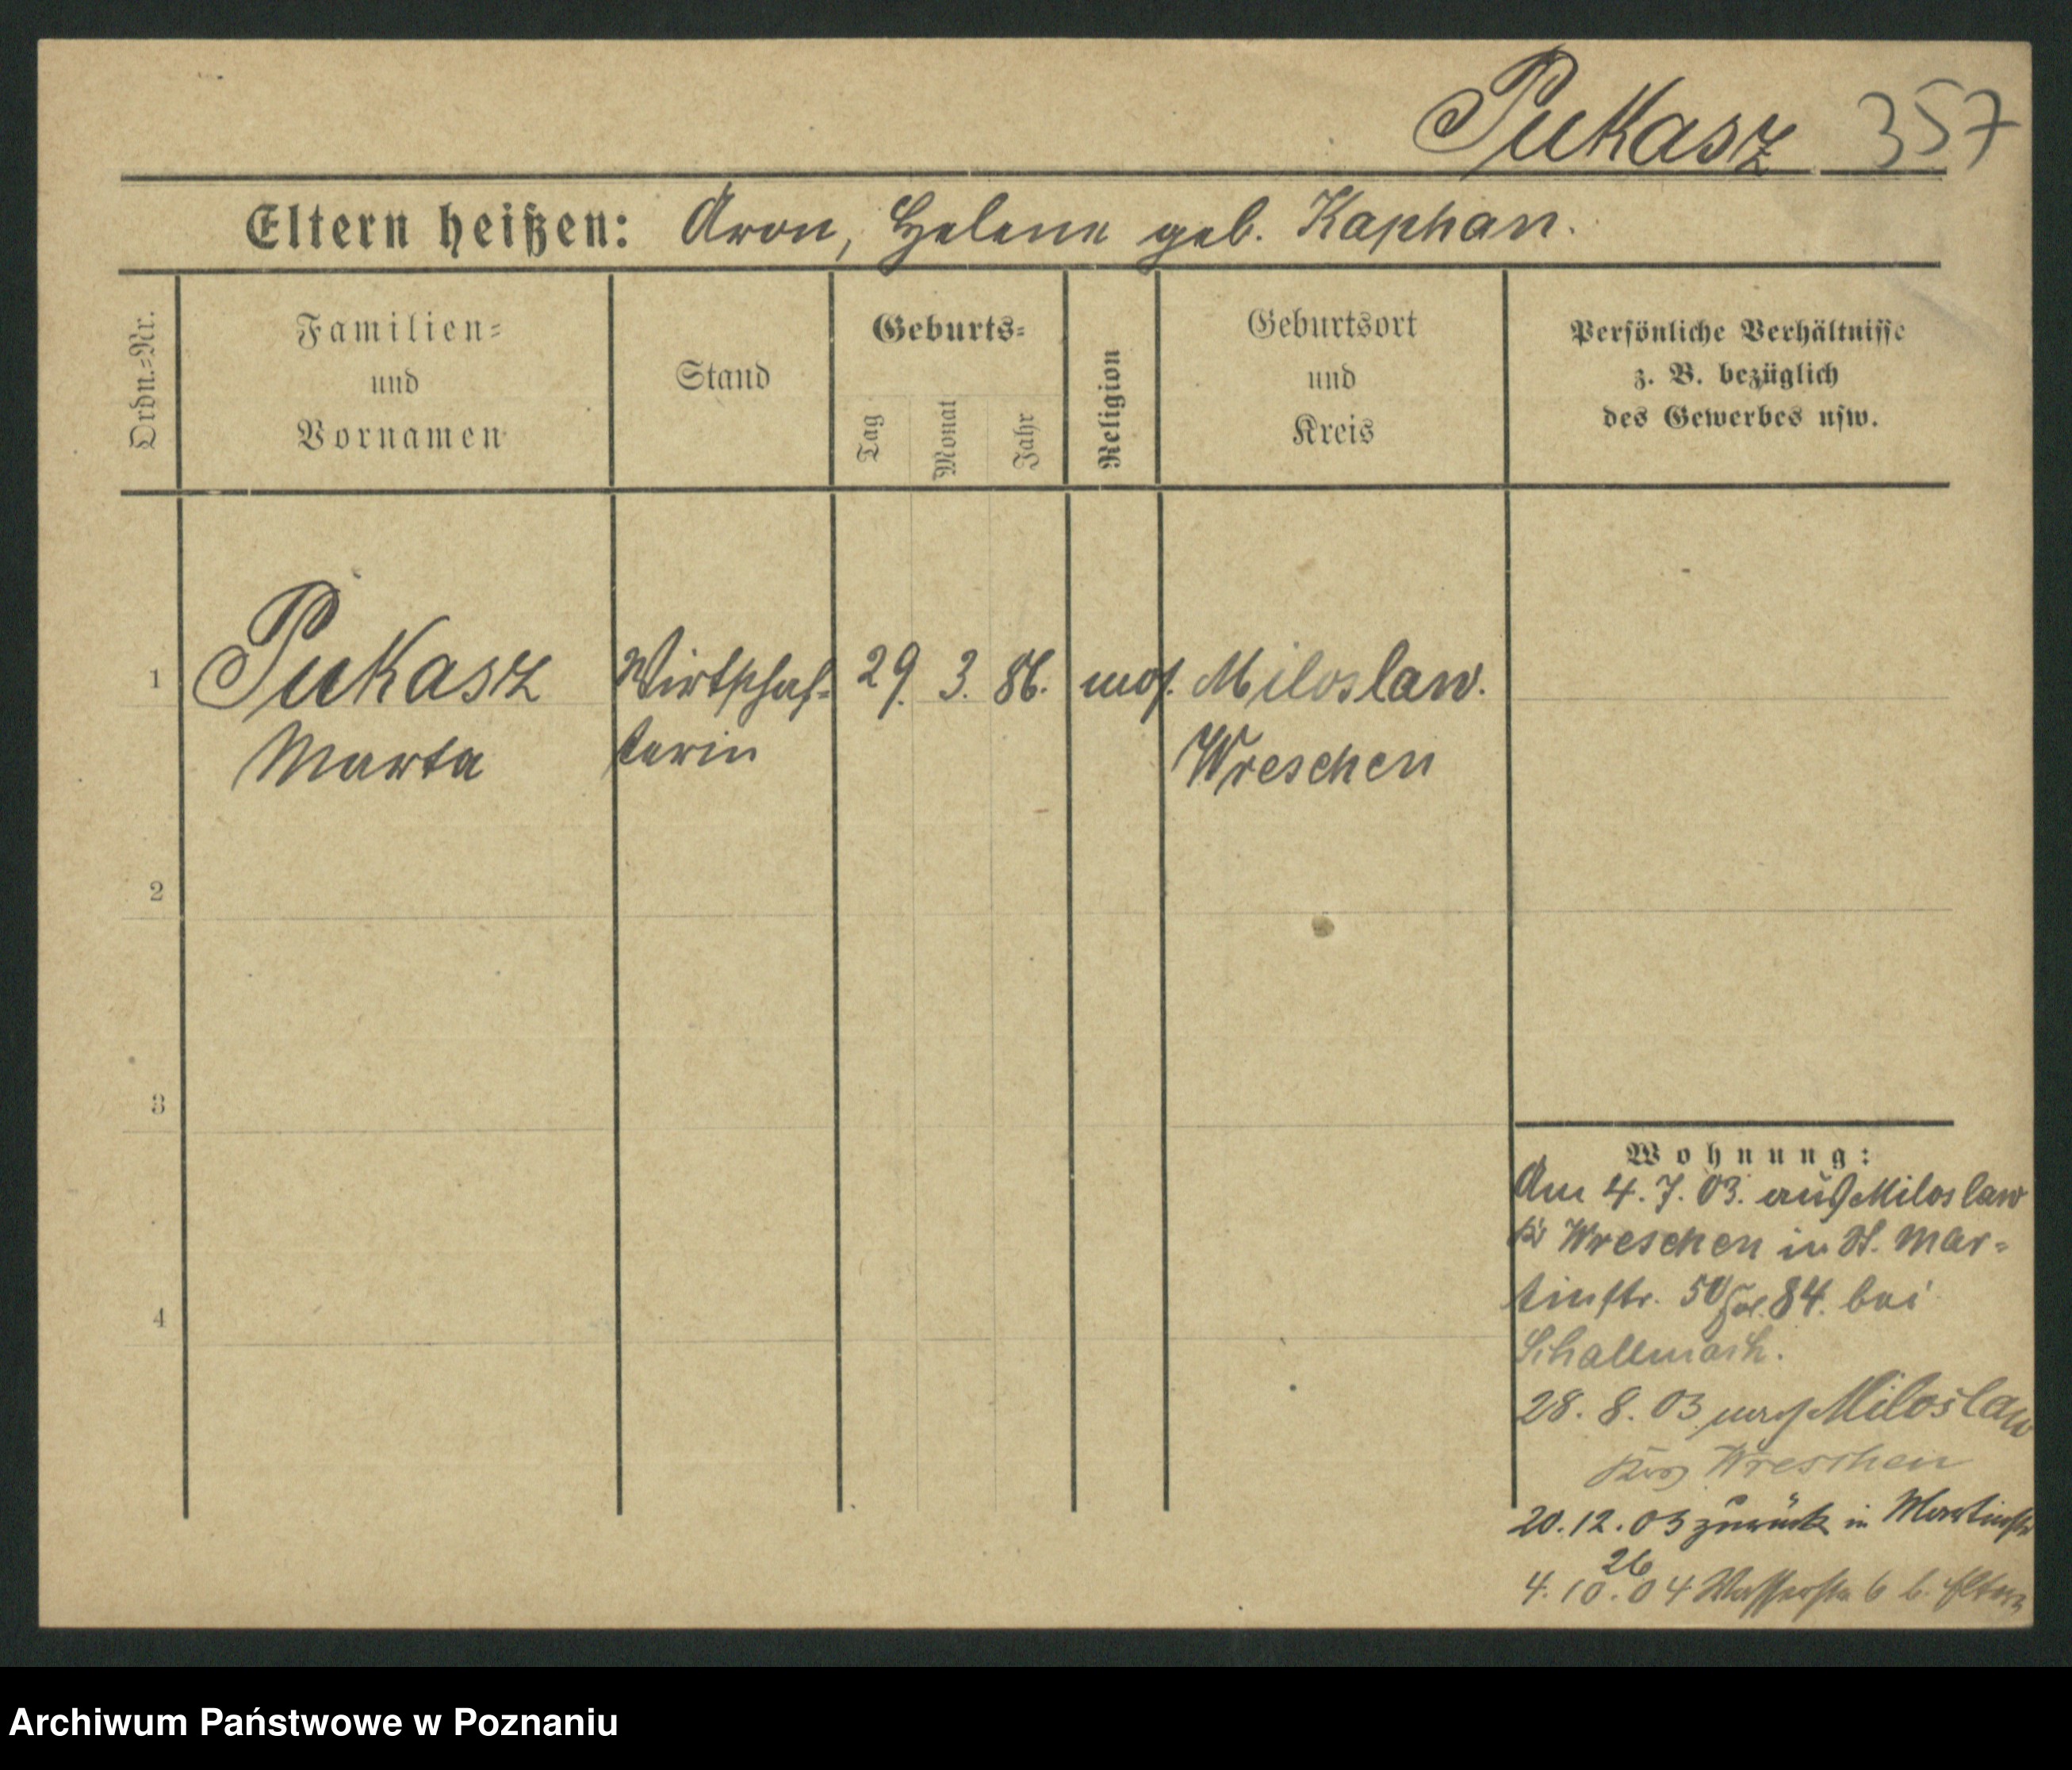 Pukasz 357
Eltern heißen: Aron, Helene geb. Kaphan.
Ordn.=Nr.
Familien=
und
Vornamen
Stand
Geburts=
Tag
Monat
Jahr
Religion
Geburtsort
und
Kreis
Persönliche Verhältnisse
z. B. bezüglich
des Gewerbes usw.
1 Pukasz Wirtschaf= 29. 3. 86. mos. Miloslaw.
Marta terin Wreschen
2
3
4
Wohnung:
Am 4. 7. 03. aus Miloslaw
Kr Wreschen in St. Mar=
tinstr. 50 84. bei
Schallmach.
28. 8. 03 nach Miloslaw
Kreis Wreschen
20. 12. 03 zurück in Martinstr
26
4. 10. 04 Wasserstr 6 b. Eltern
Archiwum Państwowe w Poznaniu